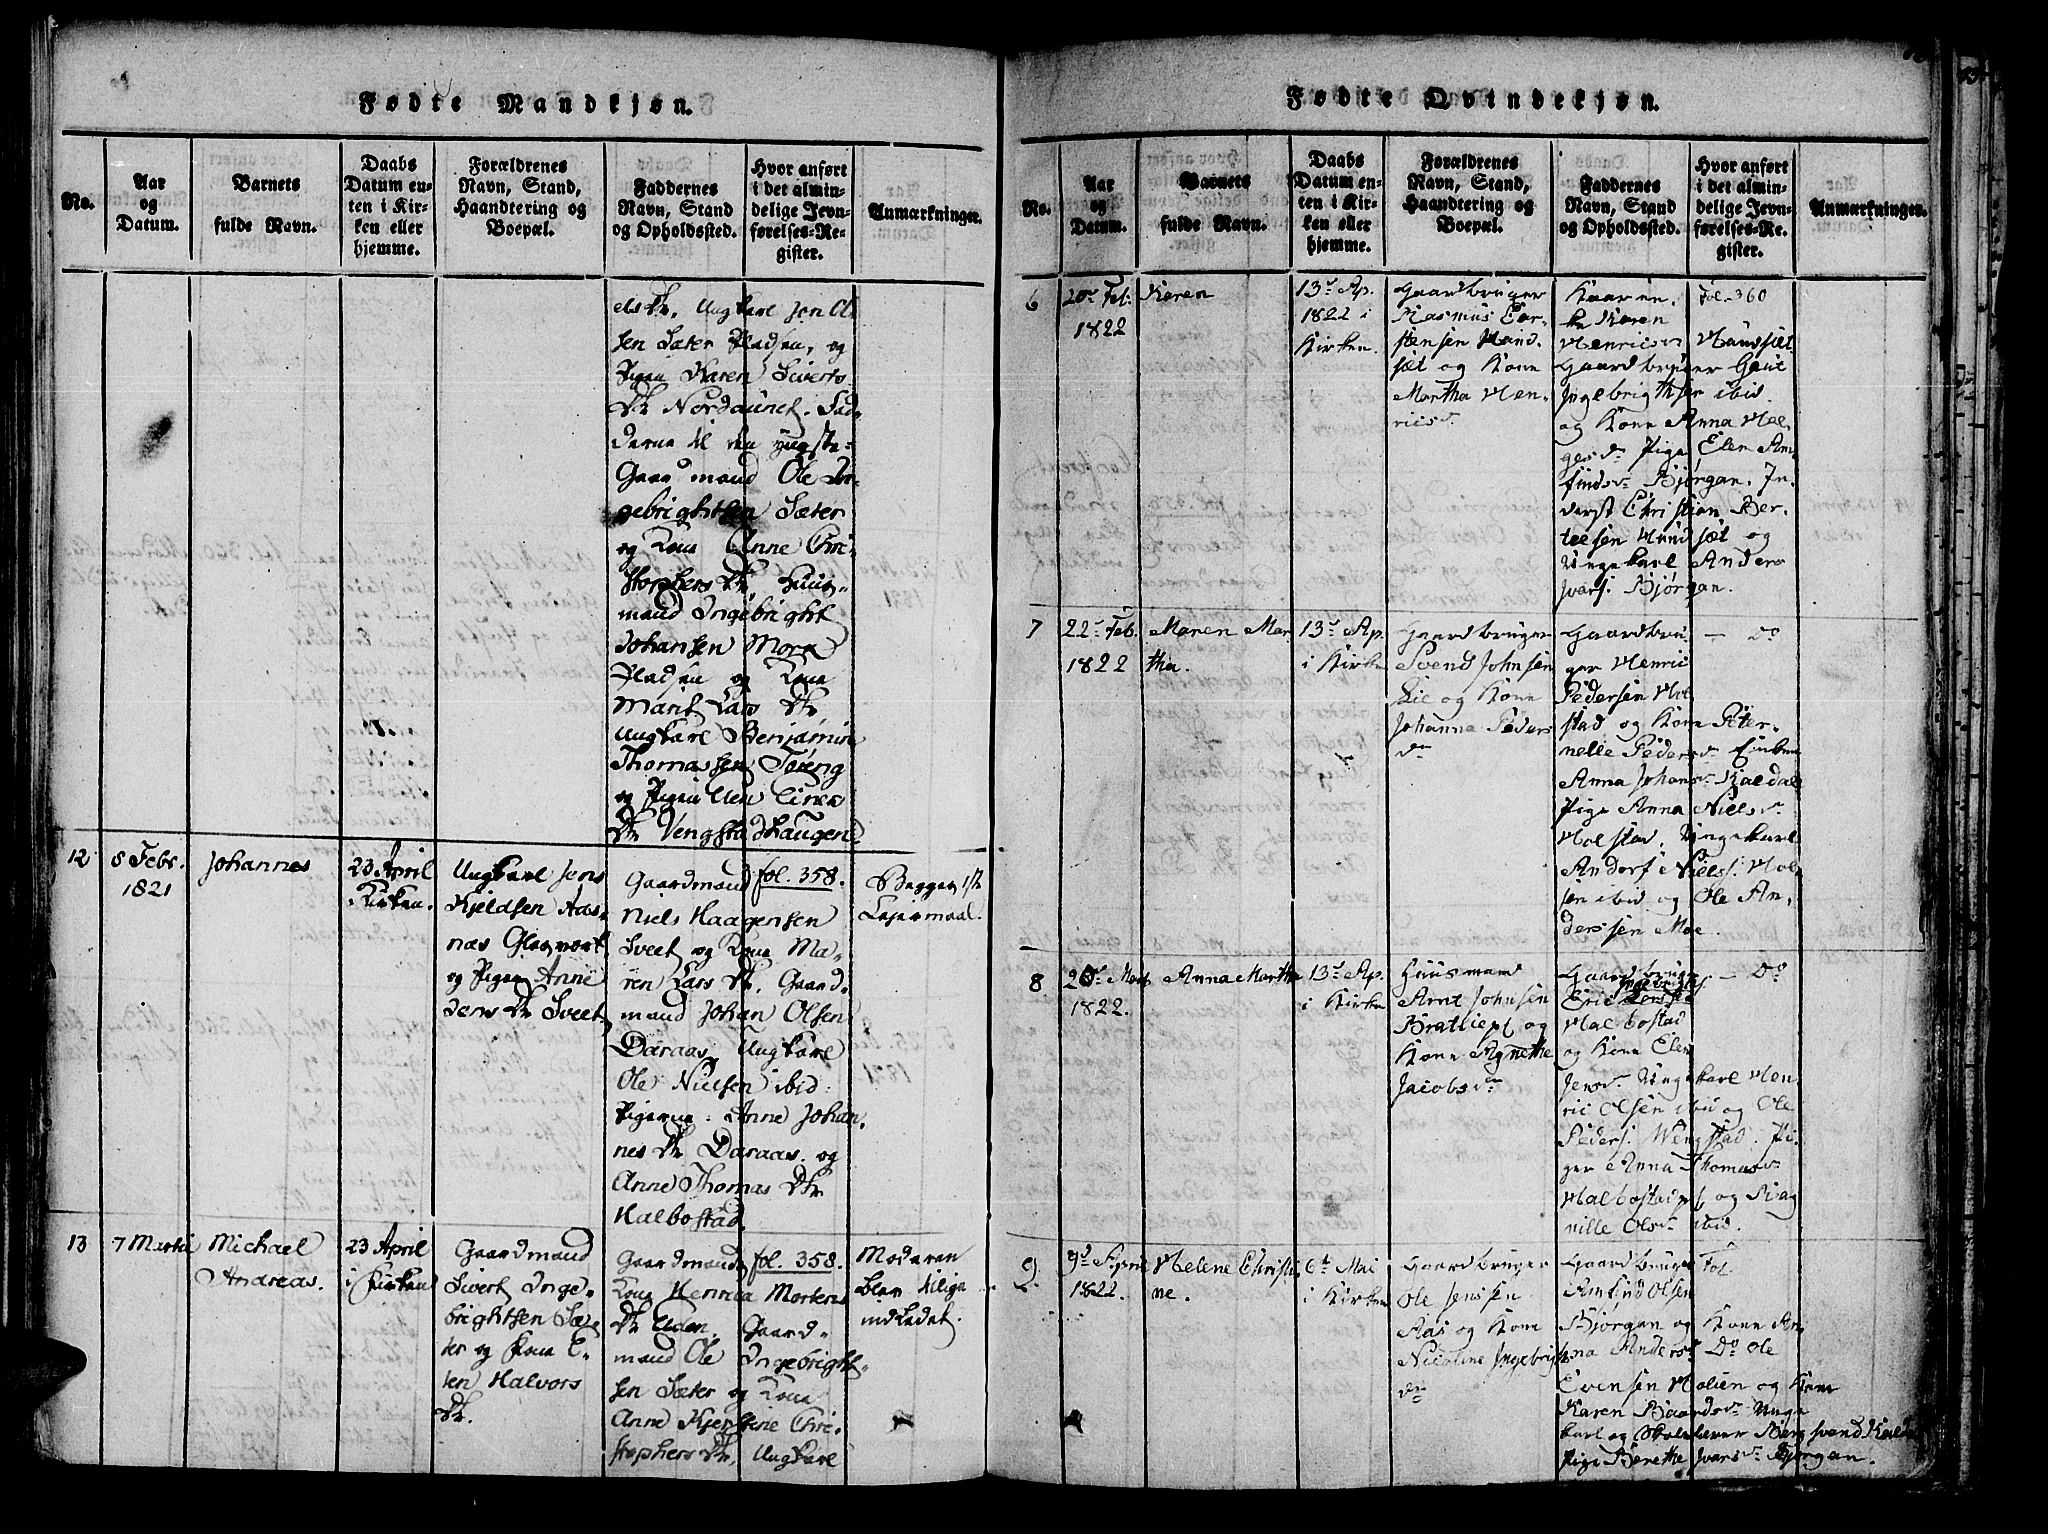 Fødte Mandkjøn.
No.
Aar og Datum.
Barnets fulde Navn.
Daabs Datum enten i Kirken eller hjemme.
Forældrenes Navn, Stand, Haandtering og Boepæl.
Faddernes Navn, Stand og Opholdssted.
Hvor anført i det almindelige Jevnførelses-Register.
Anmærkninger.
Ungkarl Jon Ol
sen Sæter Pladsen, og
Pigen Karen Siverts
Dtr Nordaunet. Fad-
derne til den yngste
Gaardmand Ole In-
gebrightsen Sæter
og Kone Anne Chri-
stophers Dtr, Huus-
mand Ingebright
Johansen Mora
Pladsen og Kone
Marit Lars Dtr
Ungkarl Benjamin
Thomassen
og Pigen
Dtr Vengstadhaugen
12
8 Febr.
1821
Johannes
23 April
i Kirken.
Ungkarl Jens
Kjeldsen Aas-
og Pigen Anne
Jens Dtr Sveet
Gaardmand
Niels Haagensen
Sveet og Kone Ma-
ren Lars Dtr. Gaard-
mand Johan Olsen
Daraas, Ungkarl
Ole Nielsen ibid:
Pigerne: Anne Johan
nes Dtr Daraas. og
Anne Thomas Dtr
Halbostad.
fol. 358.
Begges 1ste
Lejermaal.
13
7 Martii
Michael
Andreas.
23 April
i Kirken
Gaardmand
Sivert Inge-
brightsen Sæ-
ter og Kone E-
len Halvors
Dtr.
Gaardmand
Kone Henrica Mortens
Dtr Uden. Gaard-
mand Ole Ingebright-
sen Sæter og Kone
Anne Kjerstine Chri-
stophers Dtr, Ungkarl
fol. 358.
Moderen
blev tillige
indledet.
Fødte Qvindekjøn.
No.
Aar og Datum.
Barnets fulde Navn.
Daabs Datum enten i Kirken eller hjemme.
Forældrenes Navn, Stand, Haandtering og Boepæl.
Faddernes Navn, Stand og Opholdssted.
Hvor anført i det almindelige Jevnførelses-Register.
Anmærkninger.
6
20de Feb.
1822
Karen
13de Ap.
1822 i
Kirken.
Gaardbruger
Rasmus Car-
stensen Hund-
sæt og Kone
Martha Hen-
ricsd.
Karen
Henricsdr Hundsæt
Gaardbruger
Ingebrigthsen ibid.
og Kone Anna Hel-
gesdr Pige Elen An-
findsdr Bjørgan. In-
derst Christian Ber-
telsen Hundsæt og
Ungekarl Anders
Ivars. Bjørgan.
Fol. 360
7
22de Feb.
1822
Maren Mar
tha.
13de Ap.
i Kirken
Gaardbruger
Svend Johnsen
Lie og Kone
Johanna Peders
dr
Gaardbru-
ger Henric
Pedersen Hol
stad og Kone Peter-
nelle Pedersdr
Anna Johansdr Kaldal
Pige Anna Nielsdr
Holstad. Ungekarl
Andorf Niels. Hol-
sen ibid og Ole An-
derssen Moe.
– Do
8
1822.
Anna Martha
13de Ap.
i Kirken
Huusmand
Arnt Johnsen
og
Kone Agnethe
Jacobsdr
Gaardbruger
Eric Ingebrigts.
Halbostad
og Kone Elen
Jensdr Ungekarl Hen
ric Olsen ibid og Ole
Peders. Wengstad. Pi-
ger Anna Thomasdr
Halbostad og Rag
nille Olsdr ibid.
– Do
9
9de April
1822.
Helene Christi
ne.
6te Mai
i Kirken
Gaardbruger
Ole Jenssen
Aas og Kone
Nicoline Ingebrigts
dr
Gaardbruger
Amfind Olsen
Bjørgan og Kone An
na Andersdr Do Ole
Evensen Molien og Kone
Karen Baardsdr Unge
karl og Skolelærer Bergsvend Kaldal
Pige Berethe Ivarsdr Bjørgan.
Fol